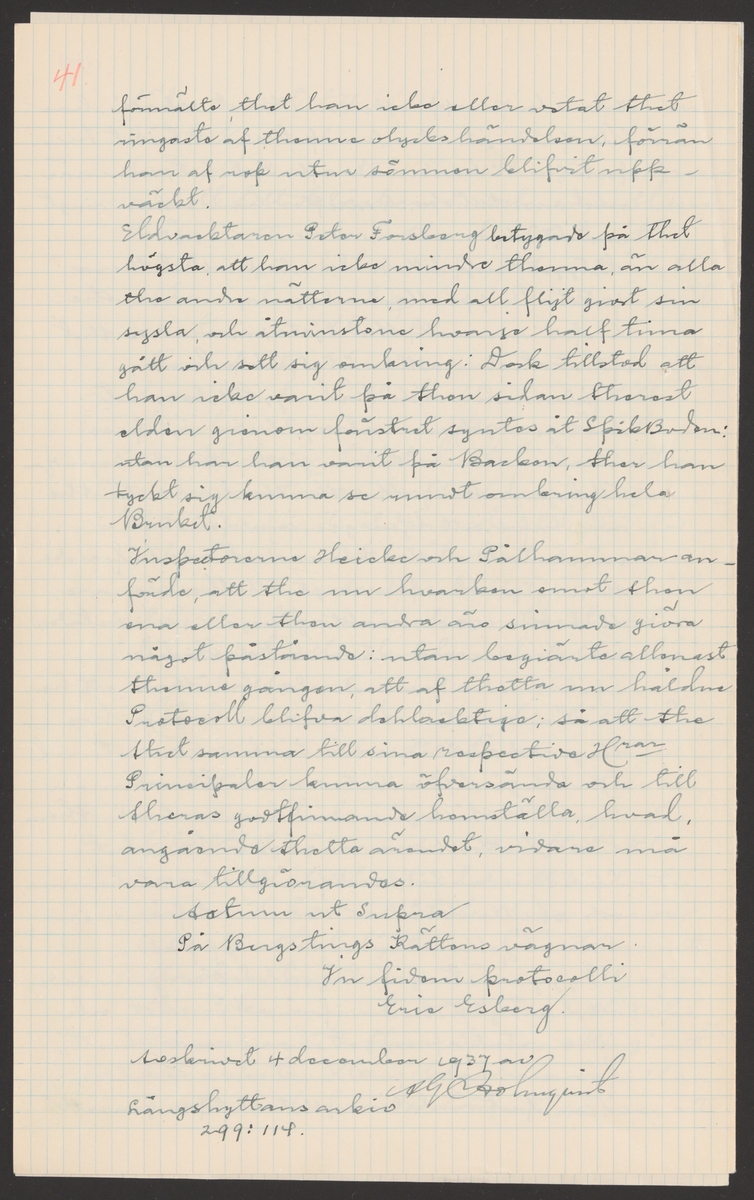 41.
förmälte, thet han icke eller vetat thet
ringaste af thenne olyckshändelsen, förrän
han af rop utur sömnen blifvit upp-
väckt.
Eldvacktaren Peter Forsberg betygade på thet
högsta, att han icke mindre thenna, än alla
the andre nätterne, med all flijt giort sin
sysla, och åtminstone hvarje half tima
gått och sett sig omkring: Dock tillstod att
han icke varit på then sidan therest
elden gienom fönstret syntes åt SpikBoden:
utan har han varit på Backen, ther han
tyckt sig kunna se rundt omkring hela
Bruket.
Inspectorerne Heicke och Pålhammar an-
förde, att the nu hvarken emot then
ena eller then andra äro sinnade giöra
något påstående: utan begiärte allenast
thenne gången, att af thetta nu håldne
Protocoll blifva dehlacktige; så att the
thet samma till sina respective Hrar
Principaler kunna öfversända och till
theras godtfinnande hemställa, hvad,
angående thetta ärendet, vidare må
vara tillgiörandes.
Actum ut Supra
På Bergstings Rättens vägnar.
In fidem protocolli
Eric Esberg.
Avskrivet 4 december 1937 av
AG Holmqvist
Långshyttans arkiv
299: 114.